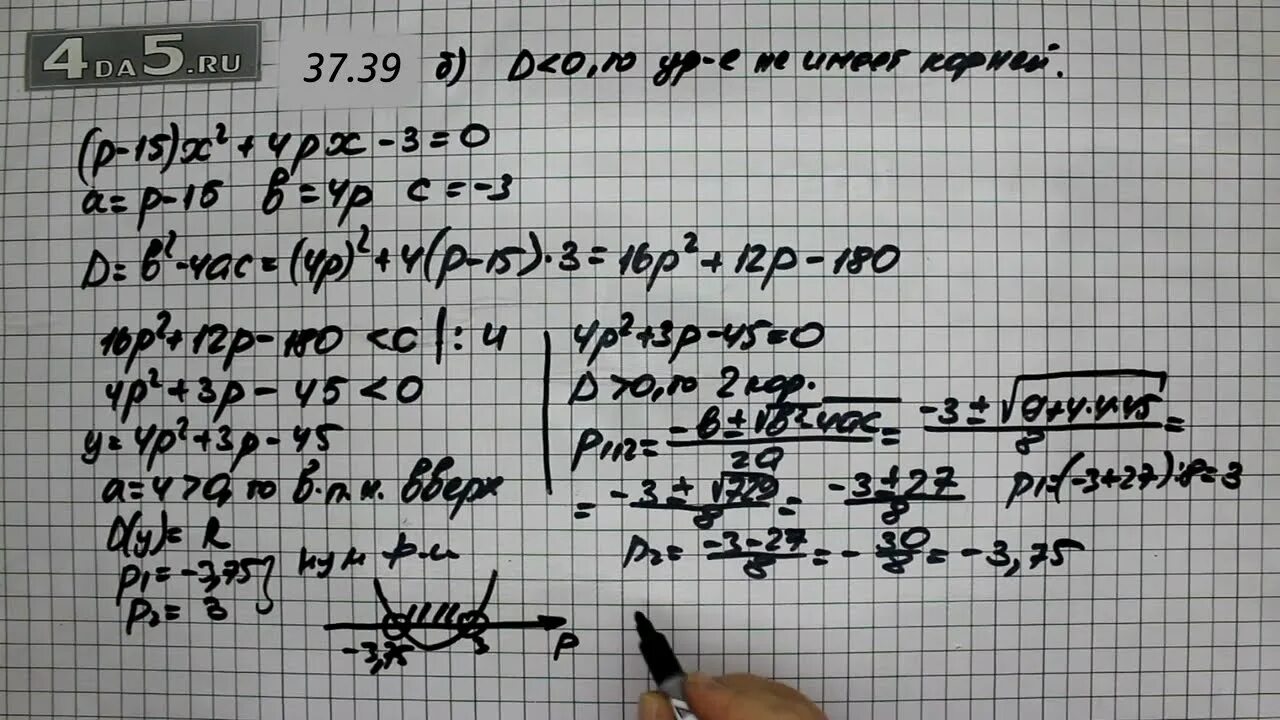 4DA5.RU
37.39 б) D<0, то ур-е не имеет корней.
(p-15)x²+4px-3=0
a=p-15 в=4p c=-3
D=в²-4ac=(4p)²+4(p-15)·3=16p²+12p-180
16p²+12p-180<0 |:4
4p²+3p-45<0
y=4p²+3p-45
a=4>0, то в.п.н. вверх
D(y)=R
p1=-3,75
p2=3
нум ф-и
-3,75 3 p
4p²+3p-45=0
D>0, то 2 кор.
p1,2=(-в±√(в²-4ac))/2a=(-3±√(9+4·4·45))/8=
=(-3±√729)/8=(-3±27)/8 p1=(-3+27):8=3
p2=(-3-27)/8=-30/8=-3,75